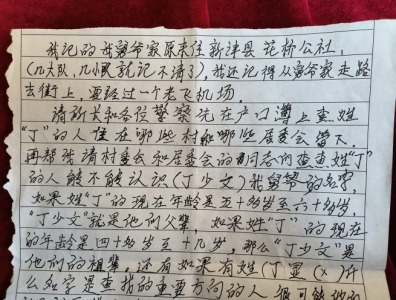 我记的我舅爷家原来住新津县花桥公社,
(几大队,几小队就记不清了),我还记得从舅爷家走路
去街上,要经过一个老飞机场。
请所长和各位警察先在户口簿上查姓
"丁"的人住在哪些村和哪些居委会管下,
再帮我请村委会和居委会的同志们查查姓"丁"
的人能不能认识(丁少文)我舅爷的名字,
如果姓"丁"的现在年龄是五十多岁至六十多岁,
"丁少文"就是他们父辈,如果姓"丁"的现在
的年龄是四十多岁至十几岁,那么"丁少文"是
他们的祖辈,还有如果有姓(丁显(×)什
么名字是查找的重要方向的人很可能他的